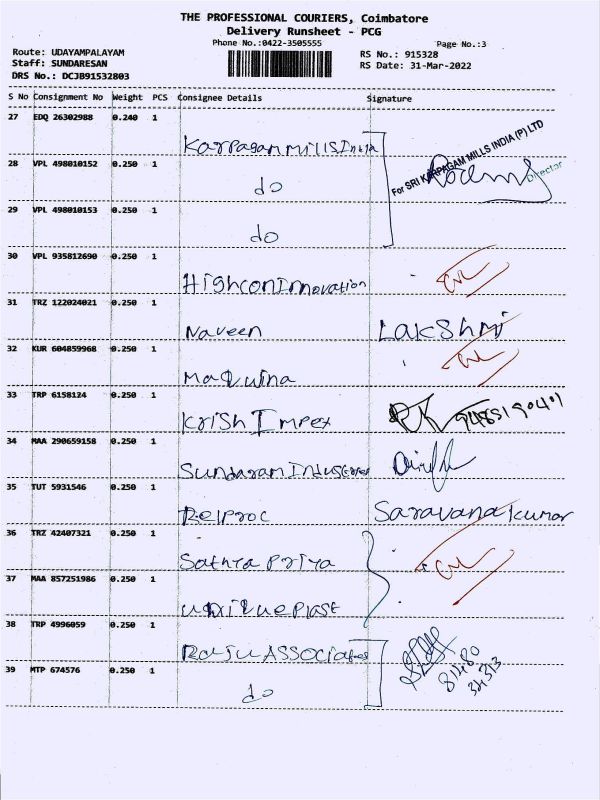 THE PROFESSIONAL COURIERS, Coimbatore
Delivery Runsheet - PCG
Phone No.:0422-3505555
Page No.:3
Route: UDAYAMPALAYAM
RS No.: 915328
Staff: SUNDARESAN
RS Date: 31-Mar-2022
DRS No.: DCJB91532803
S No Consignment No Weight PCS Consignee Details Signature
27 EDQ 26302988 0.240 1
Karpagam Mills India
For SRI KARPAGAM MILLS INDIA (P) LTD
Director
28 VPL 498010152 0.250 1
do
29 VPL 498010153 0.250 1
do
30 VPL 935812690 0.250 1
Highcon Innovation
31 TRZ 122024021 0.250 1
Naveen Lakshmi
32 KUR 604859968 0.250 1
Maquina
33 TRP 6158124 0.250 1
Krish Impex
34 MAA 290659158 0.250 1
Sundaram Industries
35 TUT 5931546 0.250 1
Relproc Saravana kumar
36 TRZ 42407321 0.250 1
Sathya Priya
37 MAA 857251986 0.250 1
uniquePlast
38 TRP 4996059 0.250 1
Raju Associates
81480
39 MTP 674576 0.250 1
34313
do